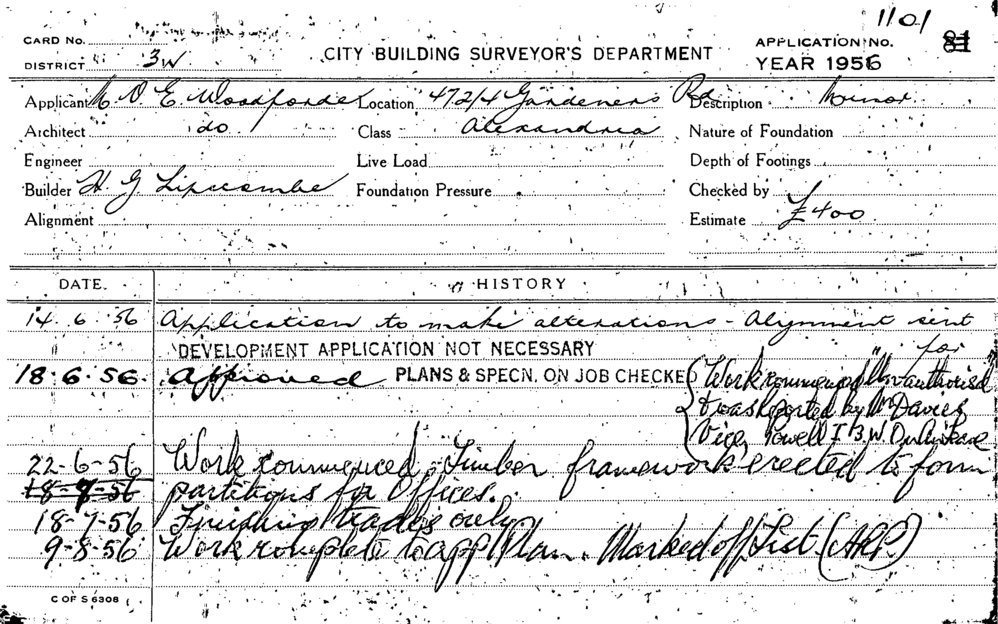 1101
CARD No.
APPLICATION No. 81
DISTRICT 3W
CITY BUILDING SURVEYOR'S DEPARTMENT
YEAR 1956
Applicant O E Woodforde Location 472/4 Gardeners Rd Description Minor
Architect do. Class Alexandria Nature of Foundation
Engineer Live Load Depth of Footings
Builder H. G Lipscombe Foundation Pressure Checked by
Alignment Estimate £400
DATE. HISTORY
14 6 56 Application to make alterations - Alignment sent
for
DEVELOPMENT APPLICATION NOT NECESSARY
18.6.56. Approved PLANS & SPECN. ON JOB CHECKED
Work commenced "Unauthorised"
& was reported by Mr Davies
Vice Powell
22-6-56 Work commenced, Timber framework erected to form
18-7-56 partitions for Offices.
18-7-56 Finishing trades only
9-8-56 Work complete to app Plan. Marked off List (ARP.)
C OF S 6308